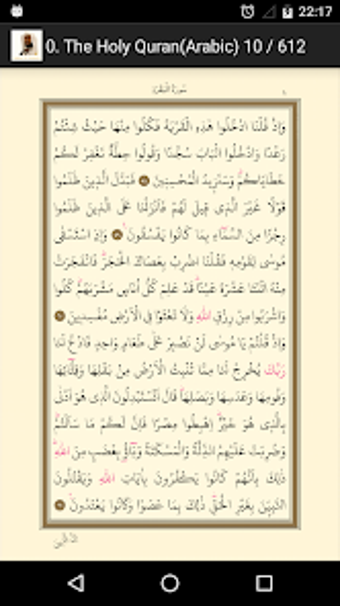 22:17
0. The Holy Quran(Arabic) 10 / 612
سُورَةُ الْبَقَرَةِ ٨
وَإِذْ قُلْنَا ادْخُلُوا هَٰذِهِ الْقَرْيَةَ فَكُلُوا مِنْهَا حَيْثُ شِئْتُمْ
رَغَدًا وَادْخُلُوا الْبَابَ سُجَّدًا وَقُولُوا حِطَّةٌ نَغْفِرْ لَكُمْ
خَطَايَاكُمْ وَسَنَزِيدُ الْمُحْسِنِينَ ٥٨ فَبَدَّلَ الَّذِينَ ظَلَمُوا
قَوْلًا غَيْرَ الَّذِي قِيلَ لَهُمْ فَأَنْزَلْنَا عَلَى الَّذِينَ ظَلَمُوا
رِجْزًا مِنَ السَّمَاءِ بِمَا كَانُوا يَفْسُقُونَ ٥٩ وَإِذِ اسْتَسْقَى
مُوسَى لِقَوْمِهِ فَقُلْنَا اضْرِبْ بِعَصَاكَ الْحَجَرَ فَانْفَجَرَتْ
مِنْهُ اثْنَتَا عَشْرَةَ عَيْنًا قَدْ عَلِمَ كُلُّ أُنَاسٍ مَشْرَبَهُمْ كُلُوا
وَاشْرَبُوا مِنْ رِزْقِ اللَّهِ وَلَا تَعْثَوْا فِي الْأَرْضِ مُفْسِدِينَ ٦٠
وَإِذْ قُلْتُمْ يَا مُوسَى لَنْ نَصْبِرَ عَلَى طَعَامٍ وَاحِدٍ فَادْعُ لَنَا
رَبَّكَ يُخْرِجْ لَنَا مِمَّا تُنْبِتُ الْأَرْضُ مِنْ بَقْلِهَا وَقِثَّائِهَا
وَفُومِهَا وَعَدَسِهَا وَبَصَلِهَا قَالَ أَتَسْتَبْدِلُونَ الَّذِي هُوَ أَدْنَى
بِالَّذِي هُوَ خَيْرٌ اهْبِطُوا مِصْرًا فَإِنَّ لَكُمْ مَا سَأَلْتُمْ
وَضُرِبَتْ عَلَيْهِمُ الذِّلَّةُ وَالْمَسْكَنَةُ وَبَاؤُا بِغَضَبٍ مِنَ اللَّهِ
ذَلِكَ بِأَنَّهُمْ كَانُوا يَكْفُرُونَ بِآيَاتِ اللَّهِ وَيَقْتُلُونَ
النَّبِيِّينَ بِغَيْرِ الْحَقِّ ذَلِكَ بِمَا عَصَوْا وَكَانُوا يَعْتَدُونَ ٦١